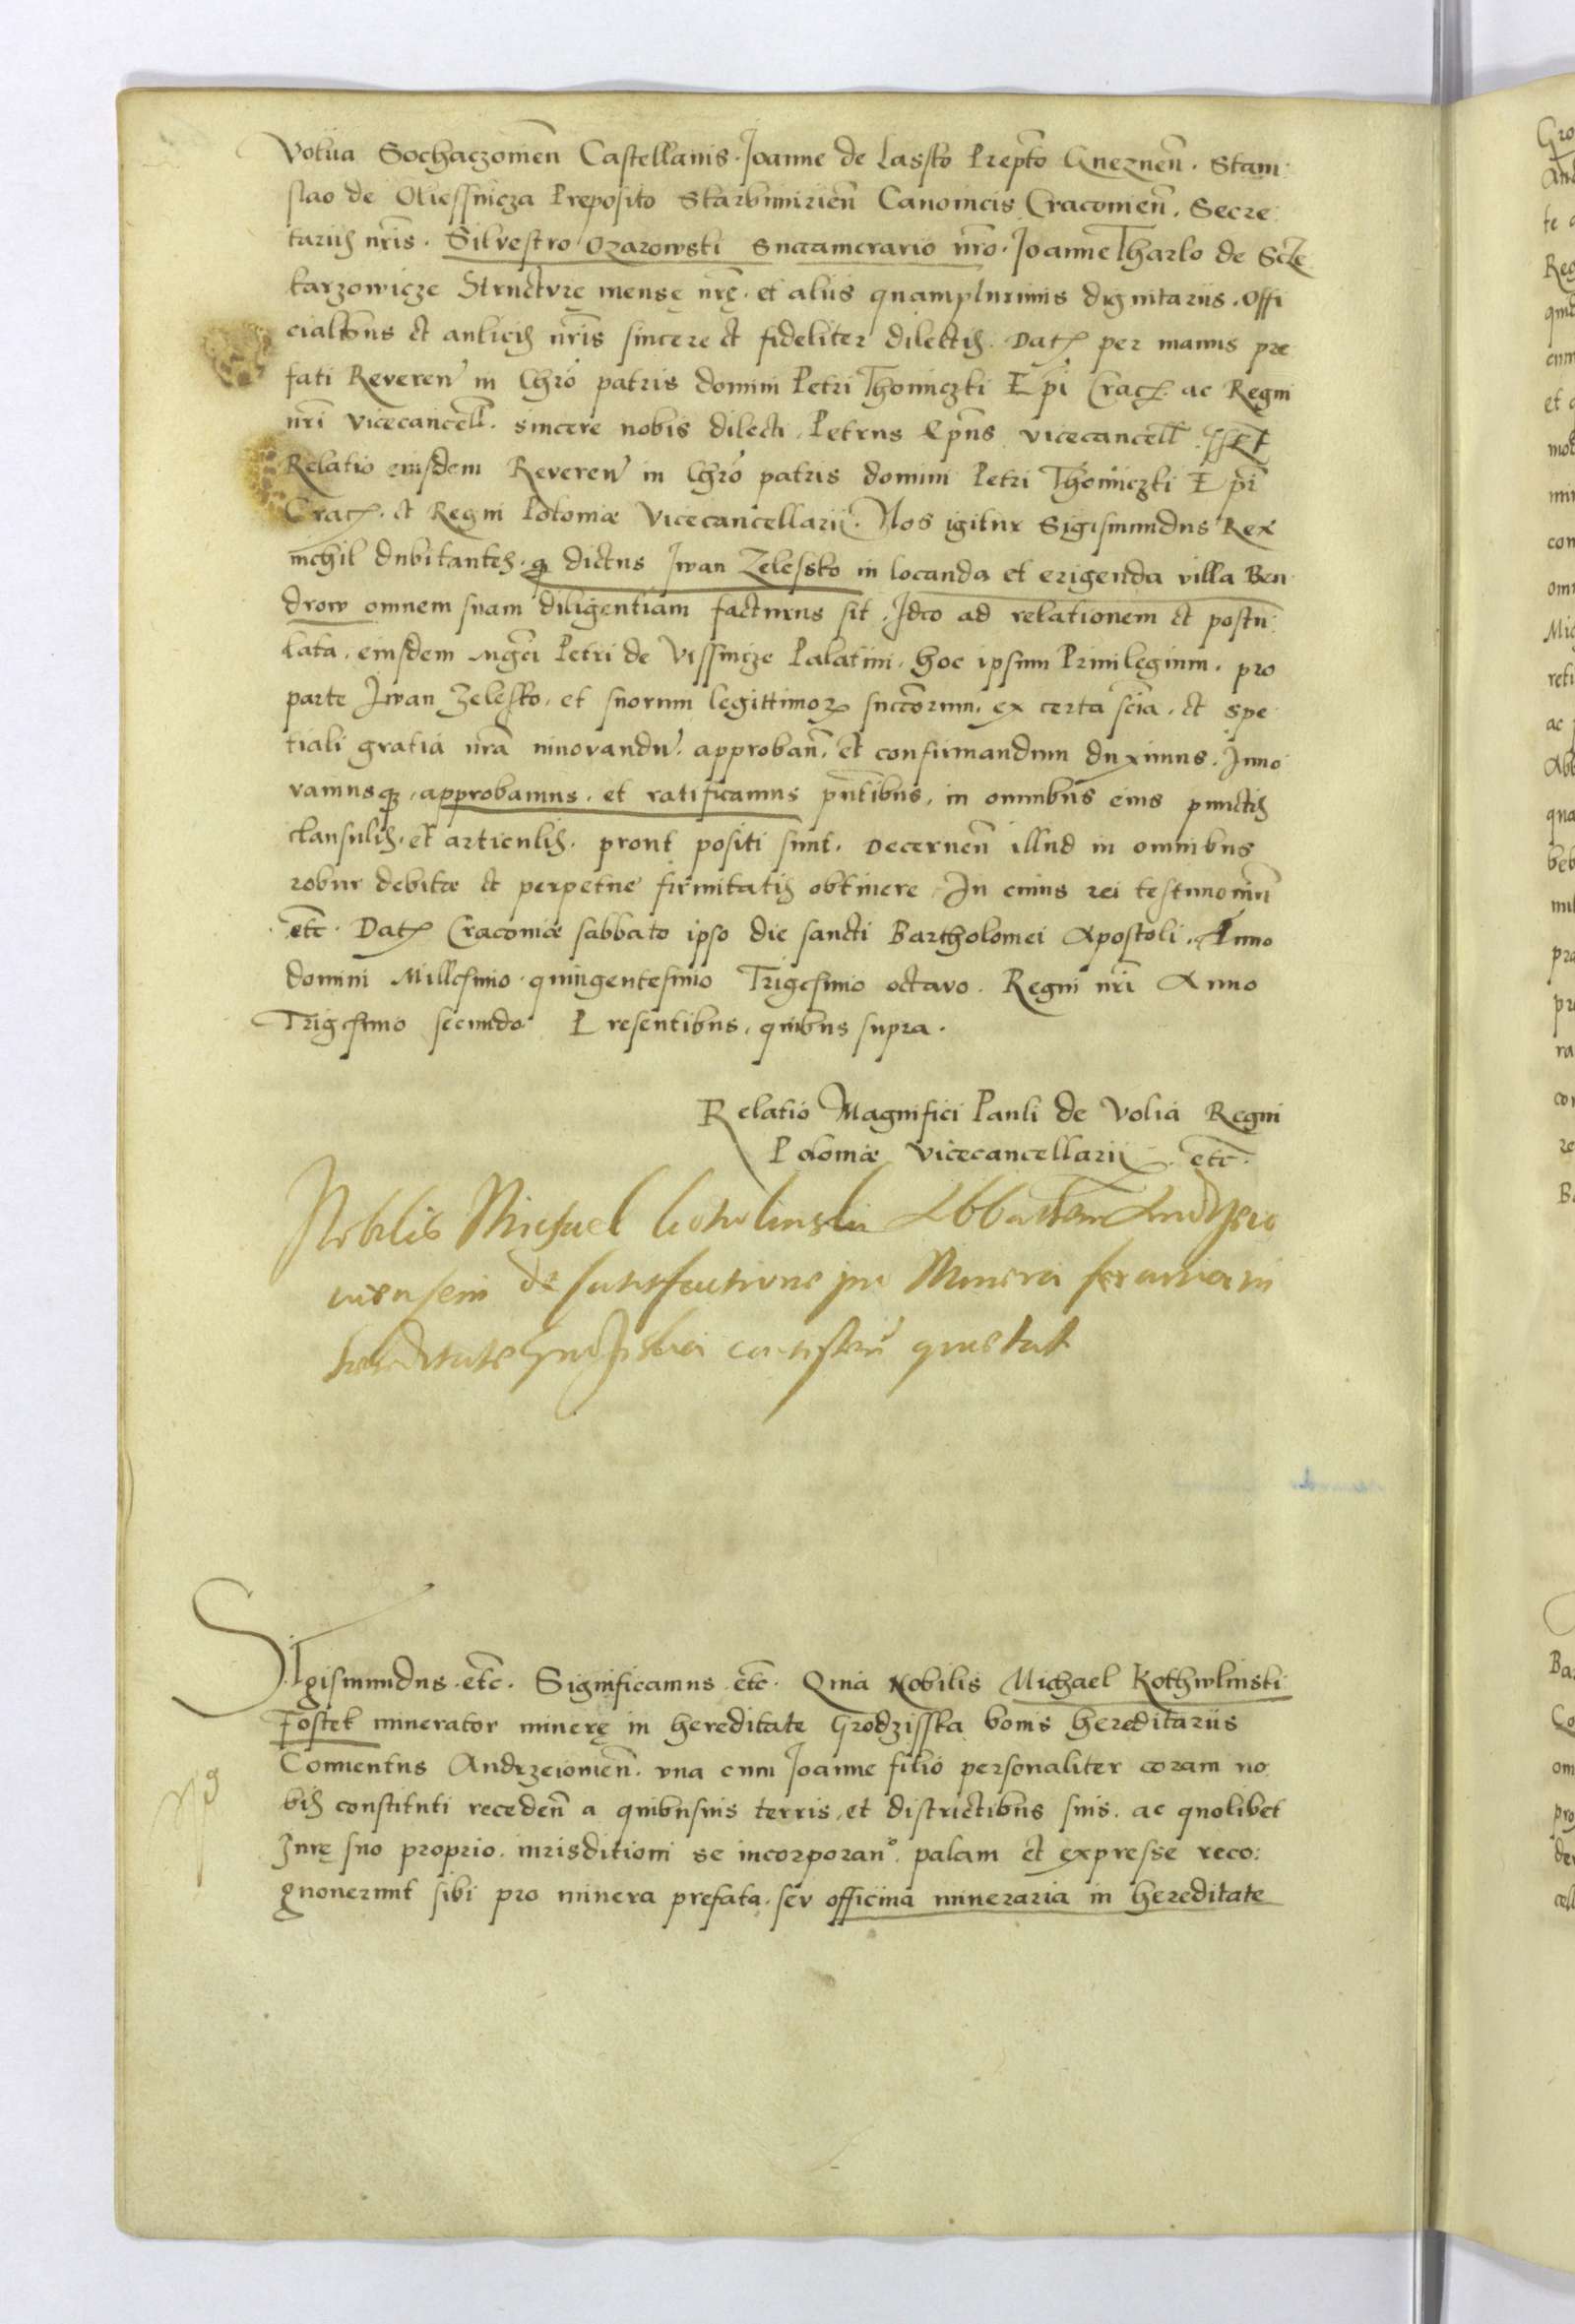 Votua Sochaczouien̄ Castellanis. Joanne de Lassko Prep̄to Gneznen̄. Stani
slao de Oliessnicza Preposito Skarbimirien̄ Canonicis Cracouien̄. Secre
tariis nr̄is. Silvestro Ozarowski Succamerario nr̄o. Joanne Tharlo de Scze
karzowicze Structurę mensę nrę̄. et aliis quampluriımis dignitariis. Offi
cialibus et aulicis nr̄is sincere et fideliter dilectis. Dat. per manus pre
fati Reveren in Chr̄o patris domini Petri Thomiczki Ep̄i Crac. ac Regni
nr̄i vicecancell̄. sincere nobis dilecti. Petrus Ep̄us vicecancell̄ sst
Relatio eiusdem Reveren in Chr̄o patris domini Petri Thomiczki Ep̄i
Crac. et Regni Poloniæ Vicecancellarii. Nos igitur Sigismundus Rex
nichil dubitantes. q dictus Iwan Zelessko in locanda et erigenda villa Ben
drow omnem suam diligentiam facturus sit. Ideo ad relationem et postu
lata. eiusdem Mgc̄i Petri de Vissnicze Palatini. hoc ipsum Privilegium. pro
parte Iwan Zelessko. et suorum legittimor succ̄orum. ex certa sc̄ia. et spe
tiali gratia nr̄a innovandu. approban̄. et confirmandum duximus. Inno
vamusq. approbamus. et ratificamus pn̄tibus. in omnibus eius punctis
clausulis. et articulis. prout positi sunt. Decernen̄ illud in omnibus
robur debitæ et perpetue firmitatis obtinere. In cuius rei testimoniū
etc̄. Dat. Cracouiæ sabbato ipso die sancti Bartholomei Apostoli. Anno
domini Millesimo quingentesimo Trigesimo octavo. Regni nr̄i Anno
Trigesimo secundo. Presentibus. quibus supra.
Relatio Magnifici Pauli de Volia Regni
Poloniæ vicecancellarii. etc̄.
Nobilis Michael Abbatem Andrzeio
viensem de satisfactione pro Minera ferraria in
hereditate quietat
Sigismundus. etc̄. Significamus. etc̄. Quia Nobilis Michael Kothwlinski
Fostek minerator minerę in hereditate Grodzisska bonis hereditariis
Conuentus Andrzeiouien̄. vna cum Joanne filio personaliter coram no
bis constituti receden̄ a quibusuis terris. et districtibus suis. ac quolibet
Iurę suo proprio. iurisditioni se incorporan. palam et expresse reco:
gnouerunt sibi pro minera prefata. seu officina mineraria in hereditate